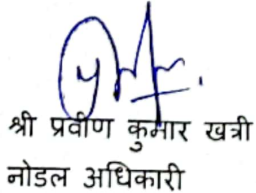 श्री प्रवीण कुमार खत्री
नोडल अधिकारी